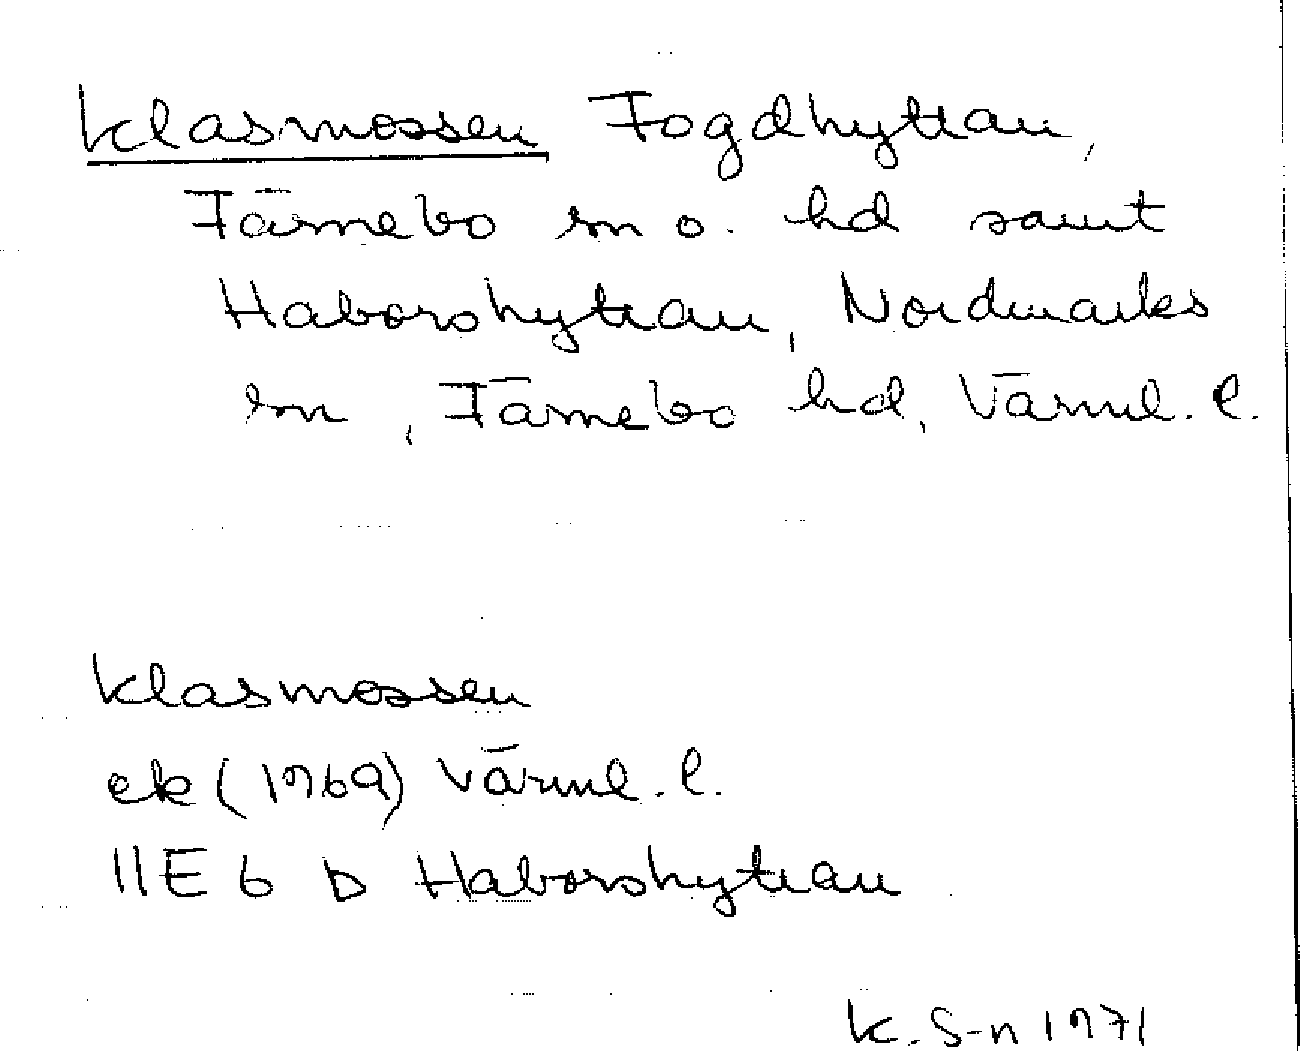 Klasmossen Fogdhyttan,
Färnebo sn o. hd samt
Haborshyttan, Nordmarks
sn, Färnebo hd, Värml. l.
Klasmossen
ek (1969) Värml. l.
11E 6 b Haborshyttan
K. S-n 1971